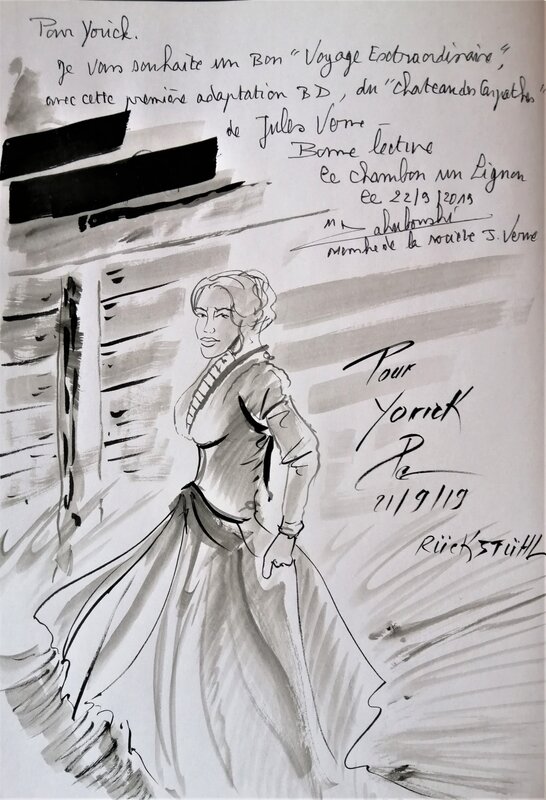 Pour Yorick.
Je vous souhaite un Bon "Voyage Extraordinaire",
avec cette première adaptation BD, du "Chateau des Carpathes"
de Jules Verne –
Bonne lecture
Le Chambon sur Lignon
le 22/9/2019
Membre de la société J. Verne
Pour
Yorick
Le
21/9/19
RÜCKSTÜHL